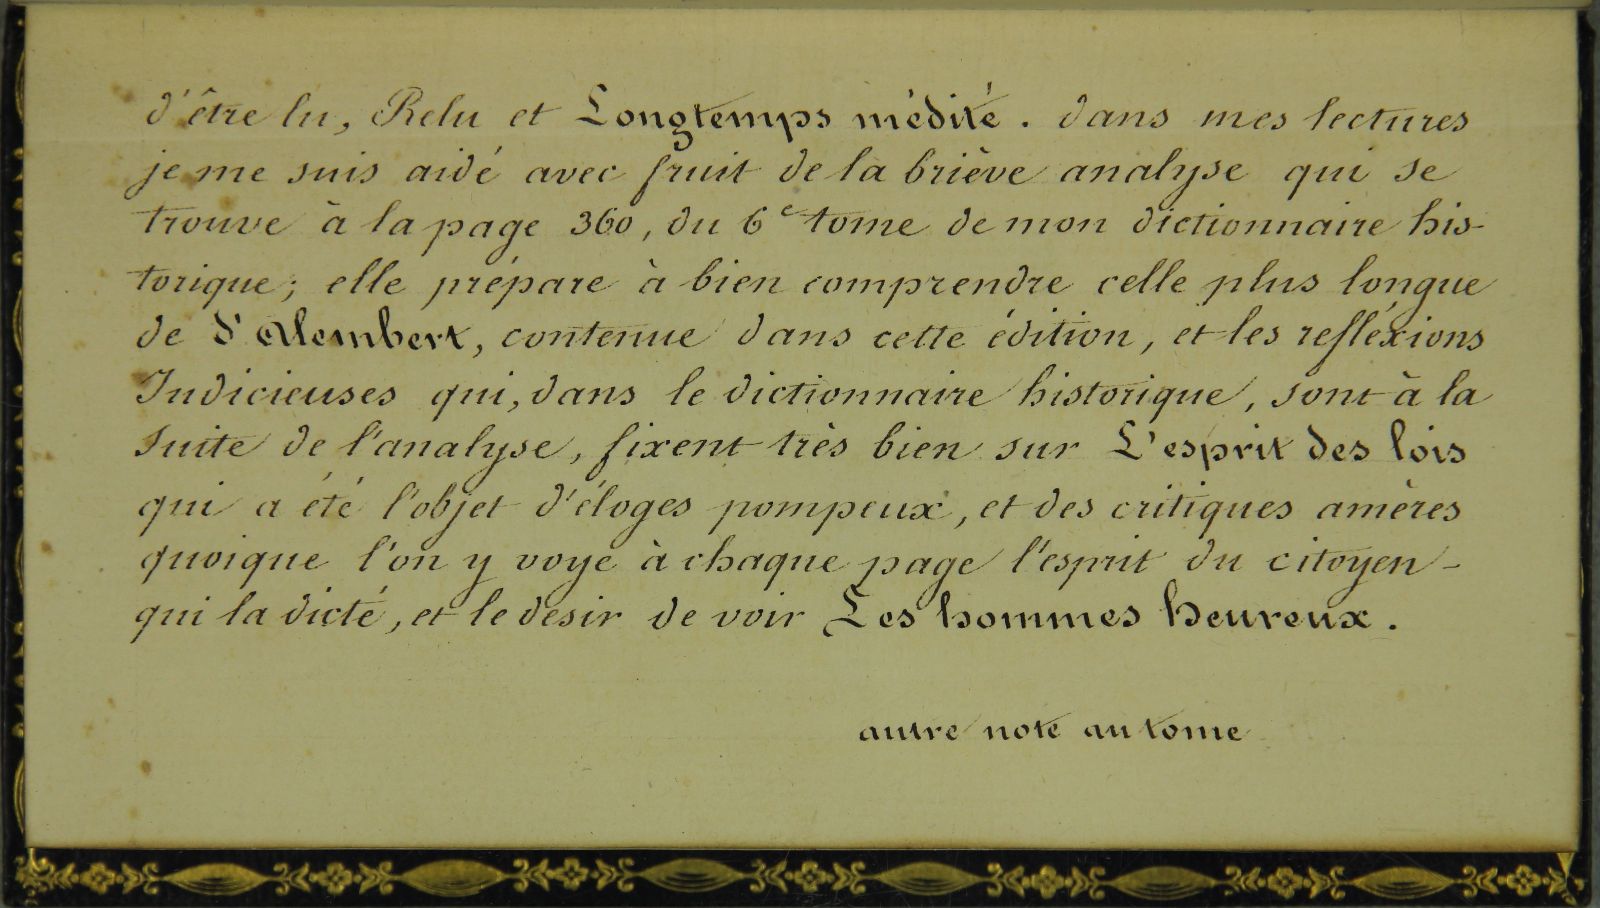 d'être lu, Relu et Longtemps médité. dans mes lectures
je me suis aidé avec fruit de la briève analyse qui se
trouve à la page 360, du 6e tome de mon dictionnaire his-
torique; elle prépare à bien comprendre celle plus longue
de d'Alembert, contenue dans cette édition, et les refléxions
Judicieuses qui, dans le dictionnaire historique, sont à la
suite de l'analyse, fixent très bien sur L'esprit des lois
qui a été l'objet d'éloges pompeux, et des critiques amères
quoique l'on y voye à chaque page l'esprit du citoyen-
qui la dicté, et le desir de voir Les hommes heureux.
autre note au tome